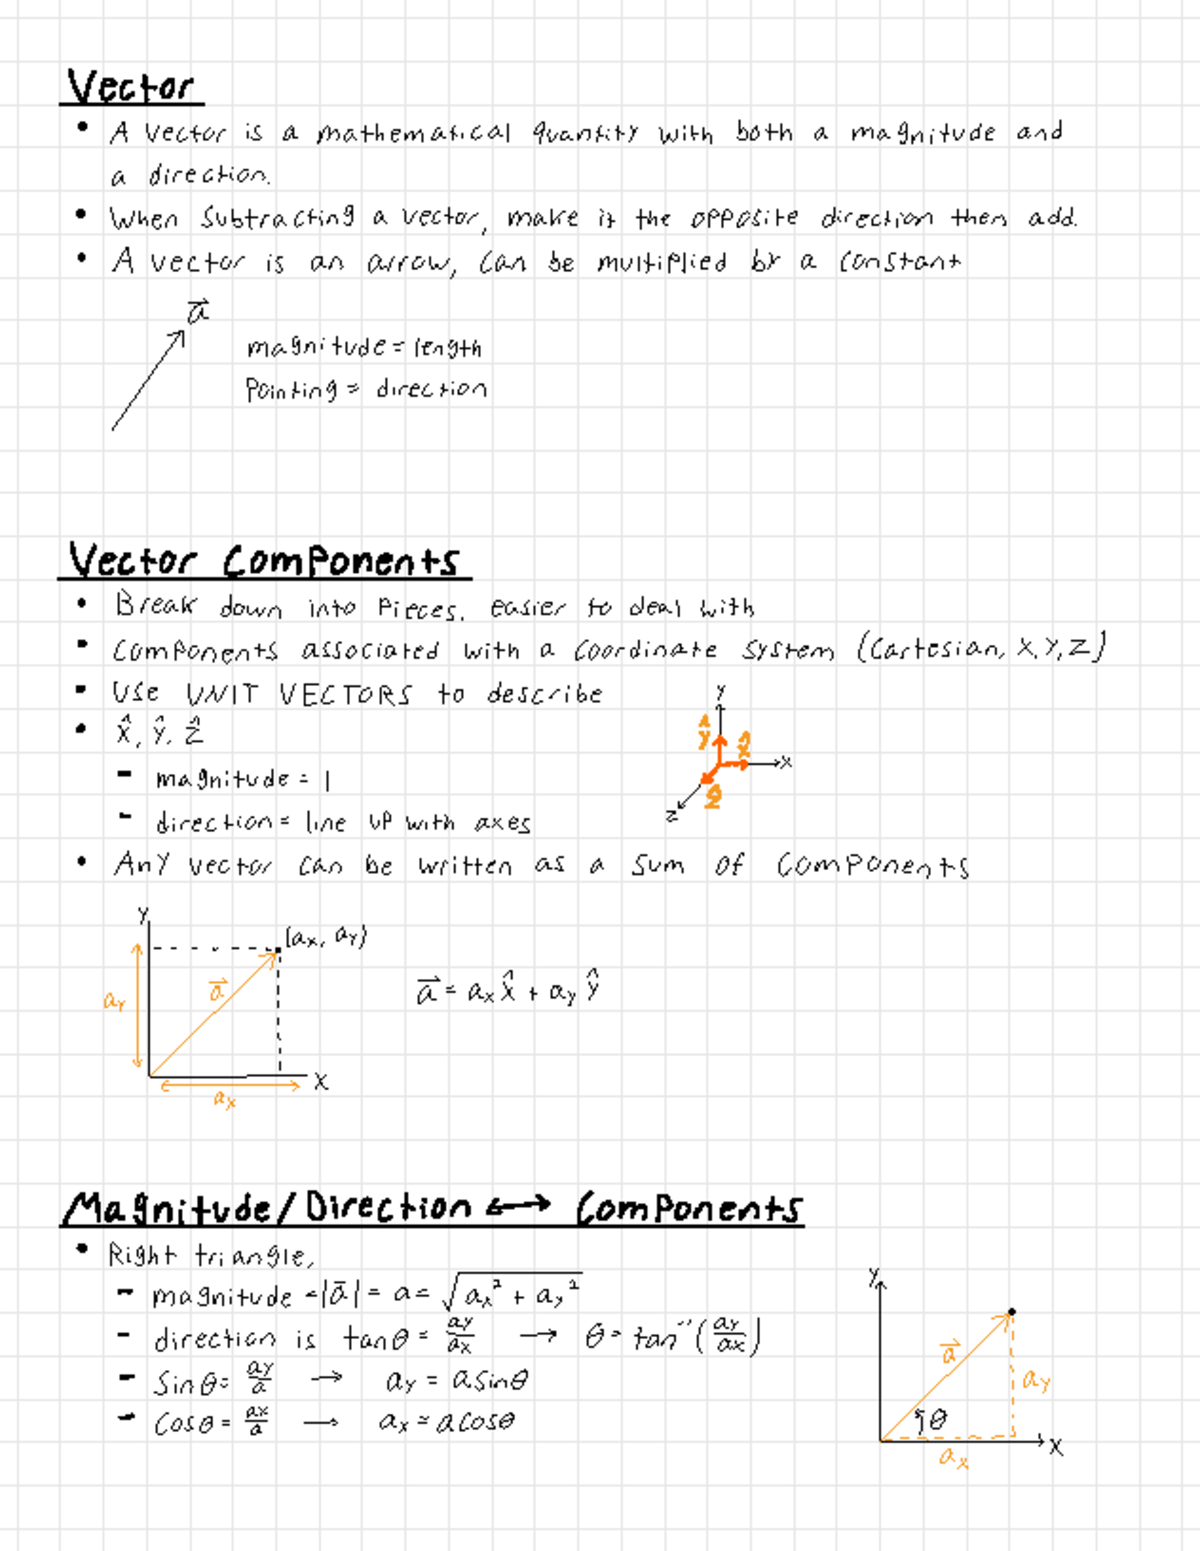 Vector
• A vector is a mathematical quantity with both a magnitude and
a direction.
• When subtracting a vector, make it the opposite direction then add.
• A vector is an arrow, can be multiplied by a constant
a⃗
magnitude = length
Pointing = direction
Vector Components
• Break down into pieces, easier to deal with
• Components associated with a coordinate system (Cartesian, X, Y, Z)
• Use UNIT VECTORS to describe
• x̂, ŷ, ẑ
- magnitude = 1
- direction = line up with axes
y
ŷ
x̂
x
ẑ
z
• Any vector can be written as a sum of components
y
(ax, ay)
a⃗
ay
a⃗ = ax x̂ + ay ŷ
x
ax
Magnitude/Direction ⟷ Components
• Right triangle,
- magnitude = |a⃗| = a = √(ax² + ay²)
- direction is tanθ = ay/ax → θ = tan⁻¹(ay/ax)
- Sinθ = ay/a → ay = asinθ
- Cosθ = ax/a → ax = acosθ
y
a⃗
ay
θ
x
ax